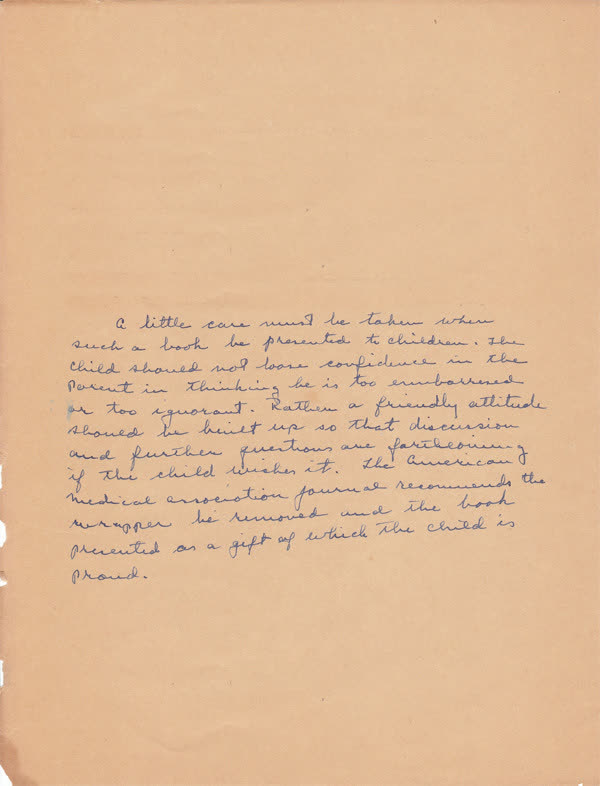 A little care must be taken when
such a book be presented to children. The
child should not loose confidence in the
parent in thinking he is too embarresed
or too ignorant. Rather a friendly attitude
should be built up so that discussion
and further questions are forthcoming
if the child wishes it. The American
medical association journal recommends the
wrapper be removed and the book
presented as a gift of which the child is
proud.